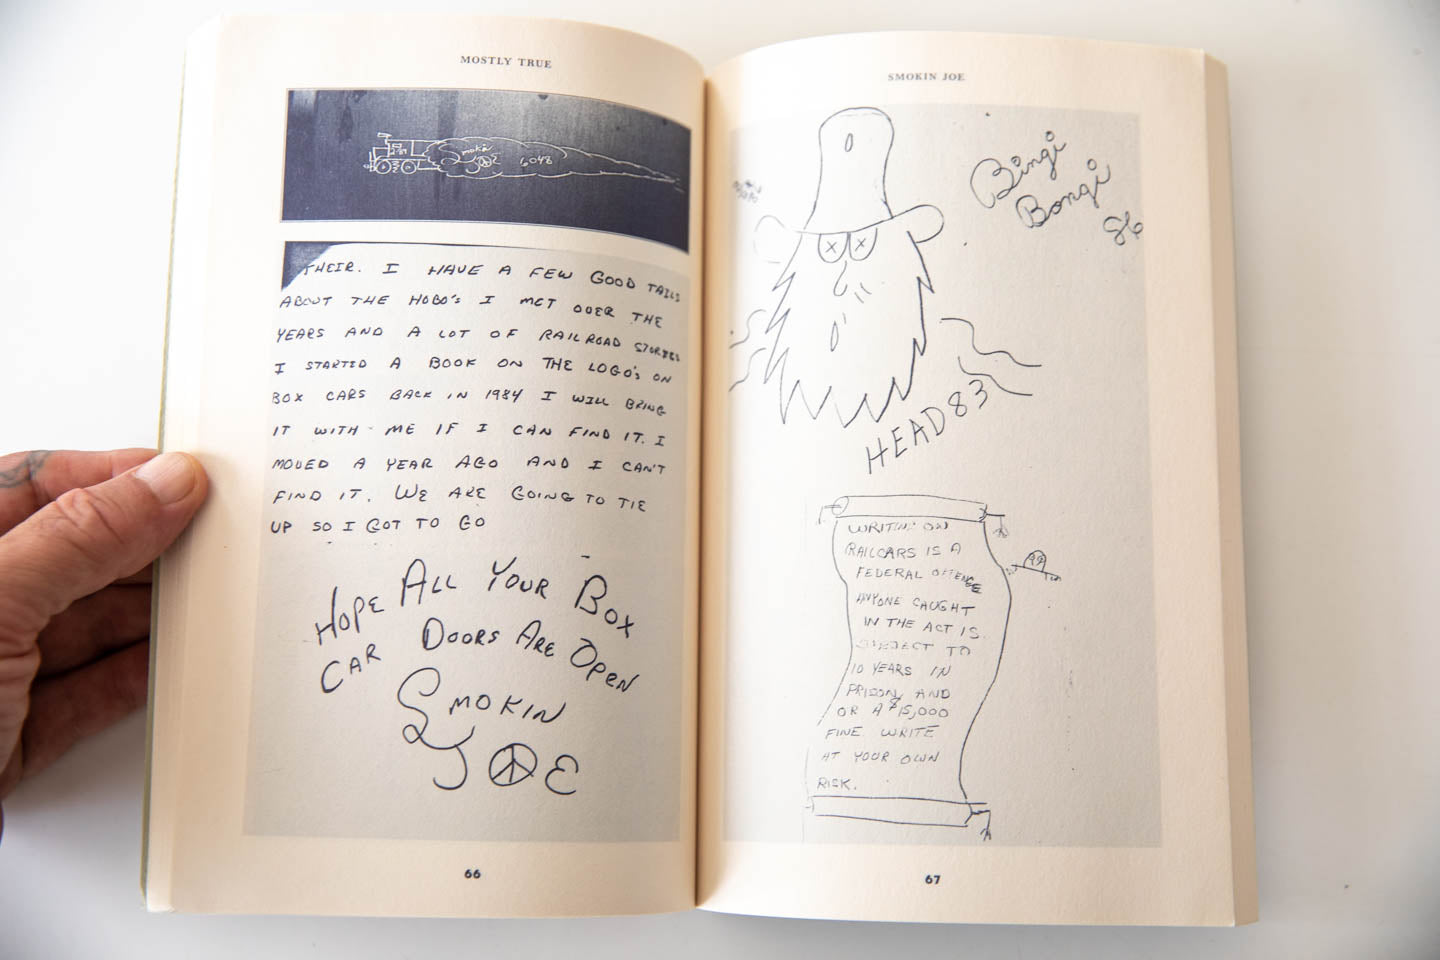 MOSTLY TRUE
Smokin
JOE 6048
THEIR. I HAVE A FEW GOOD TAILS
ABOUT THE HOBO'S I MET OVER THE
YEARS AND A LOT OF RAILROAD STORIES
I STARTED A BOOK ON THE LOGO'S ON
BOX CARS BACK IN 1984 I WILL BRING
IT WITH ME IF I CAN FIND IT. I
MOVED A YEAR AGO AND I CAN'T
FIND IT. WE ARE GOING TO TIE
UP SO I GOT TO GO
HOPE ALL YOUR BOX
CAR DOORS ARE OPEN
SMOKIN
JOE
66
SMOKIN JOE
Bingi
Bongi
86
HEAD 83
WRITING ON
RAILCARS IS A
FEDERAL OFFENSE
ANYONE CAUGHT
IN THE ACT IS
SUBJECT TO
10 YEARS IN
PRISON AND
OR A $15,000
FINE. WRITE
AT YOUR OWN
RISK.
67